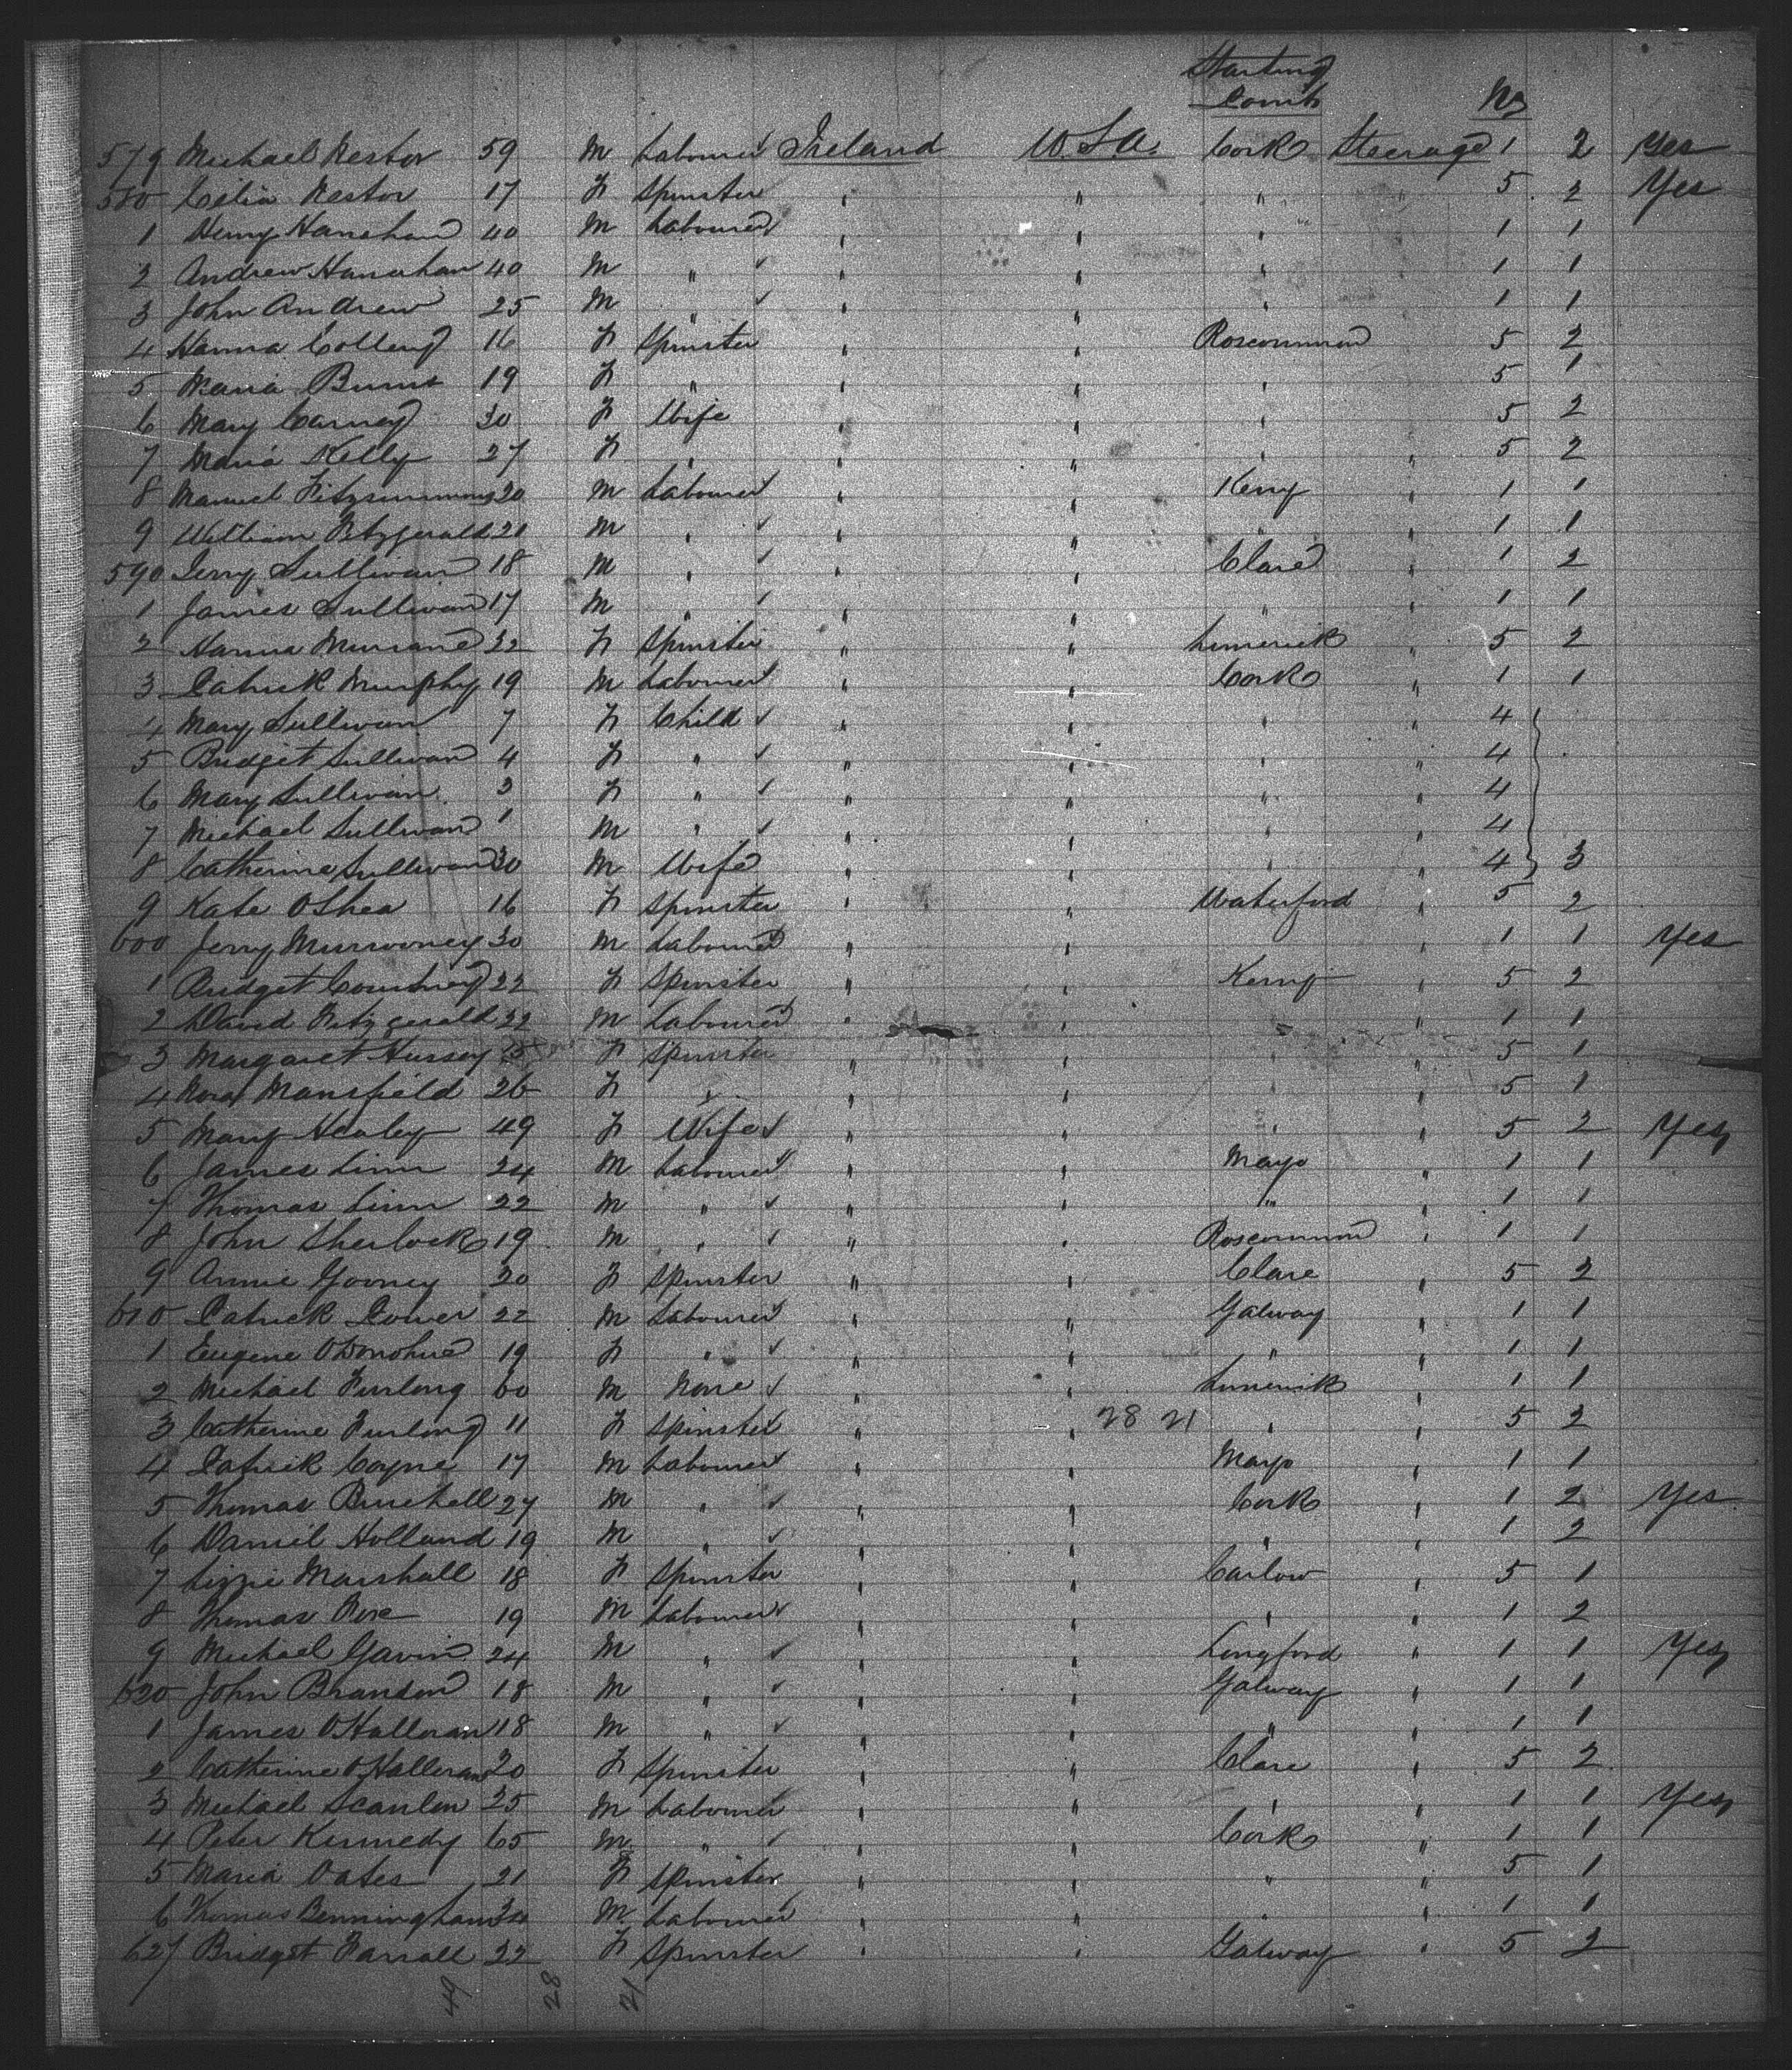 Starting
Point No
579 Michael Nestor 59 M Labourer ✓ Ireland U.S.A. Cork Steerage 1 2 Yes
580 Celia Nestor 17 F Spinster " " " " 5 2 Yes
1 Henry Hanahan 40 M Labourer ✓ " " " 1 1
2 Andrew Hanahan 40 M " ✓ " " " 1 1
3 John Andrew 25 M " ✓ " " " 1 1
4 Hanna 16 F Spinster " " Roscommon " 5 2
5 Maria Burns 19 F " " " " 5 1
6 Mary Carney 30 F Wife " " " 5 2
7 Maria Kelly 27 F " " " " " 5 2
8 Fitzsimmons 20 M Labourer ✓ " " Kerry " 1 1
9 William Fitzgerald 21 M " ✓ " " " " 1 1
590 Jerry Sullivan 18 M " ✓ " " Clare " 1 2
1 James Sullivan 17 M " ✓ " " " " 1 1
2 Hanna Murrane 22 F Spinster " " Limerick " 5 2
3 Patrick Murphy 19 M Labourer ✓ " " Cork " 1 1
4 Mary Sullivan 7 F Child ✓ " " " " 4
5 Bridget Sullivan 4 F " ✓ " " " " 4
6 Mary Sullivan 3 F " ✓ " " " " 4
7 Michael Sullivan 1 M " ✓ " " " " 4
8 Catherine Sullivan 30 M Wife " " " 4 3
9 Kate OShea 16 F Spinster " " Waterford " 5 2
600 Jerry 30 M Labourer " " " " 1 1 Yes
1 Bridget Courtney 22 F Spinster " " Kerry " 5 2
2 David Fitzgerald 22 M Labourer " " " " 1 1
3 Margaret Hussey F Spinster " " " " 5 1
4 Nora Mansfield 26 F " " " " " 5 1
5 Mary Healey 49 F Wife ✓ " " " " 5 2 Yes
6 James Linn 24 M Labourer ✓ " " Mayo " 1 1
7 Thomas Linn 22 M " ✓ " " " " 1 1
8 John Sherlock 19 M " ✓ " " Roscommon " 1 1
9 Annie Gooney 20 F Spinster " " Clare " 5 2
610 Patrick Power 22 M Labourer ✓ " " Galway " 1 1
1 Eugene ODonohue 19 F " ✓ " " " " 1 1
2 Michael Furlong 60 M None ✓ " " Limerick " 1 1
3 Catherine Furlong 11 F Spinster ✓ " " 28 21 " " 5 2
4 Patrick Coyne 17 M Labourer ✓ " " Mayo " 1 1
5 Thomas Burchell 27 M " ✓ " " Cork " 1 2 Yes
6 Daniel Holland 19 M " ✓ " " " " 1 2
7 Lizzie Marshall 18 F Spinster " " Carlow " 5 1
8 Thomas Rose 19 M Labourer ✓ " " " " 1 2
9 Michael Gavin 24 M " ✓ " " Longford " 1 1 Yes
620 John Brandon 18 M " ✓ " " Galway " 1 1
1 James OHalloran 18 M " ✓ " " " " 1 1
2 Catherine OHalloran 20 F Spinster " " Clare " 5 2
3 Michael Scanlon 25 M Labourer ✓ " " " " 1 1 Yes
4 Peter Kennedy 65 M " ✓ " " Cork " 1 1
5 Maria Oates 21 F Spinster " " " " 5 1
6 Thomas Benningham M Labourer ✓ " " " " 1 1
627 Bridget Farrall 22 F Spinster " " Galway " 5 2
49 28 21